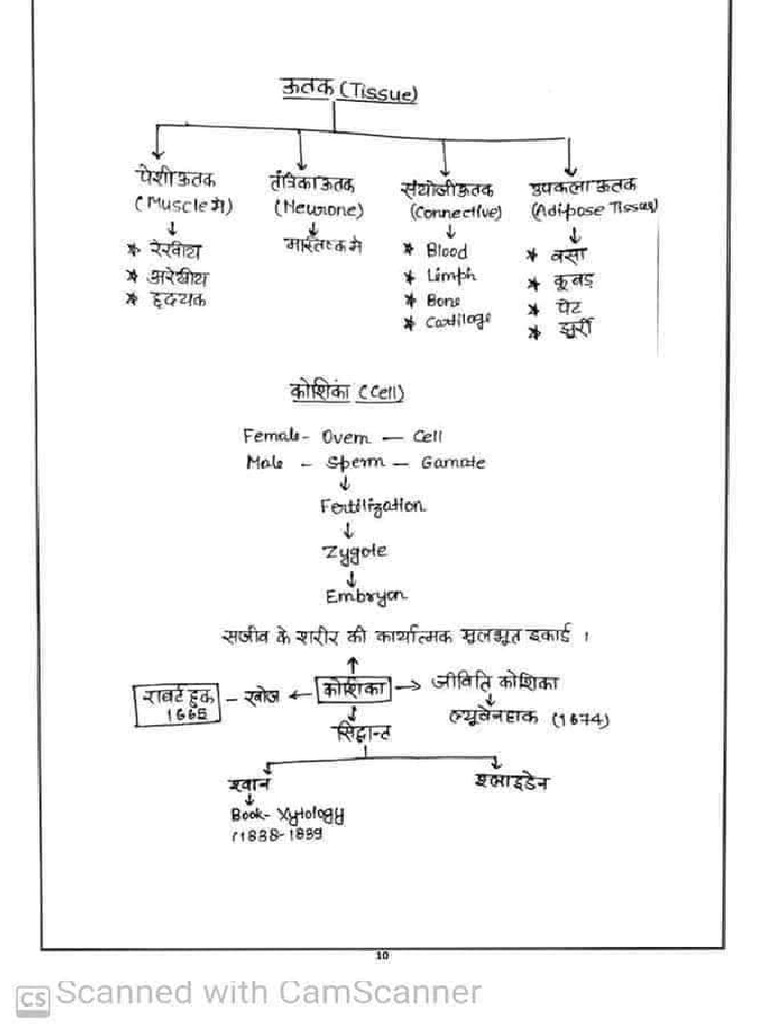 ऊतक (Tissue)
पेशीऊतक तंत्रिकाऊतक संयोजीऊतक उपकलाऊतक
(Muscle में) (Neurone) (Connective) (Adipose Tissue)
* रेखीय मास्तिष्क में * Blood * वसा
* अरेखीय * Limph * कूबड़
* हृदयक * Bone * पेट
* Cartilage * झुर्री
कोशिका (Cell)
Female - Ovem — Cell
Male - Sperm — Gamate
Fertilization
Zygote
Embryon
सजीव के शरीर की कार्यात्मक मुलभूत इकाई ।
राबर्ट हुक - खोज कोशिका जीविति कोशिका
1665 ल्यूवेनहाक (1674)
सिद्वान्त
श्वान श्लाइडेन
Book - Xytology
(1838-1839
10
CS Scanned with CamScanner